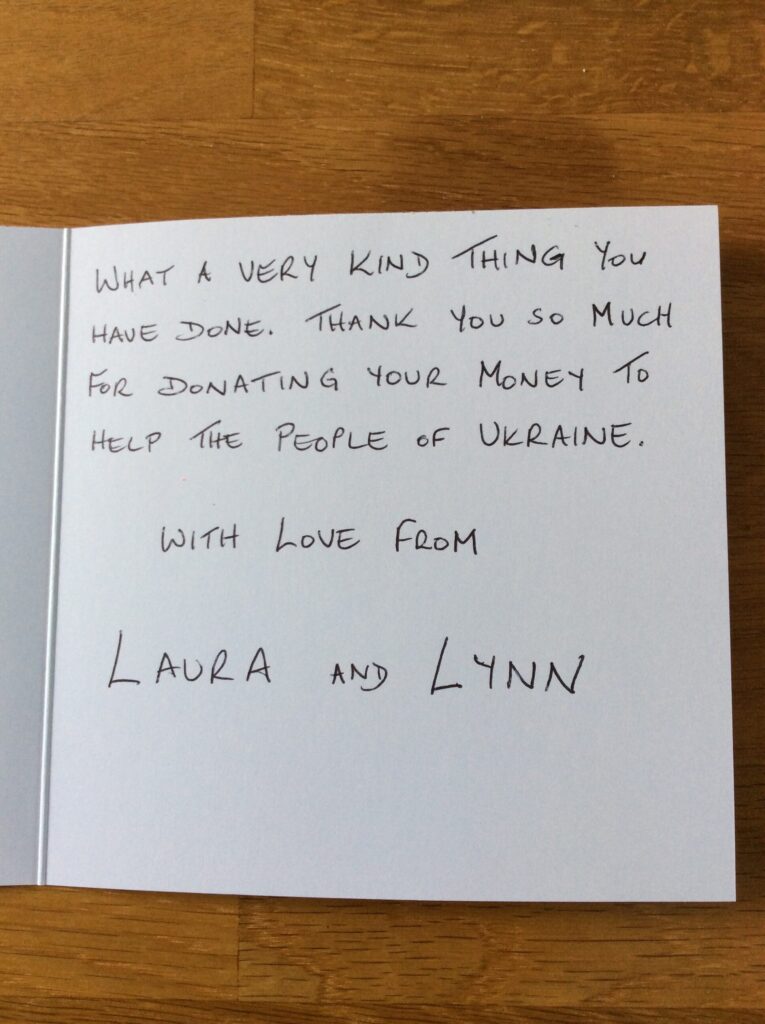 WHAT A VERY KIND THING YOU
HAVE DONE. THANK YOU SO MUCH
FOR DONATING YOUR MONEY TO
HELP THE PEOPLE OF UKRAINE.
WITH LOVE FROM
LAURA AND LYNN